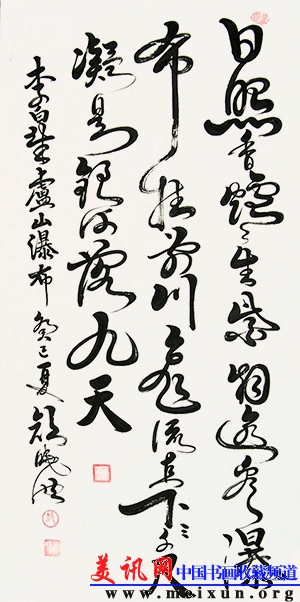 日照香爐生紫烟遥看瀑
布挂前川飛流直下三千尺
凝是銀河落九天
李白望廬山瀑布 癸巳夏
美讯网 中国书画收藏频道
www.meixun.org